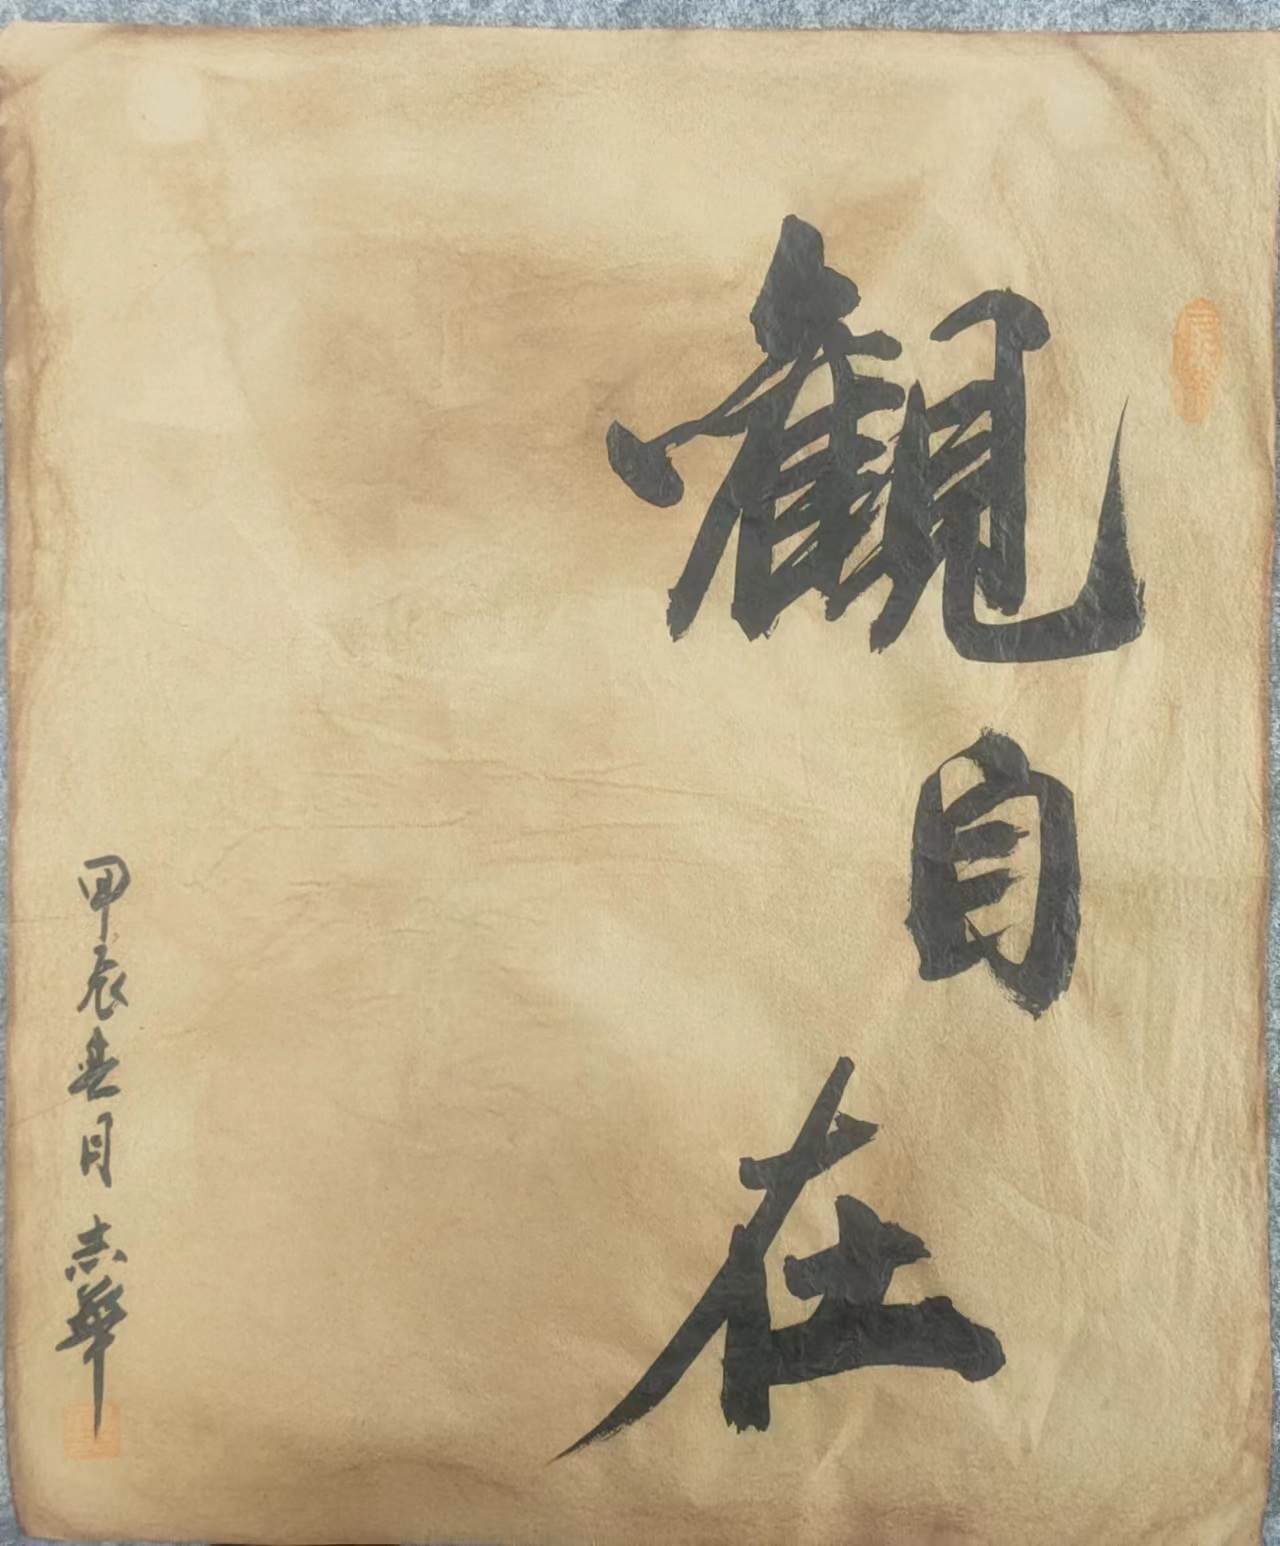 觀自在
甲辰春月 志華